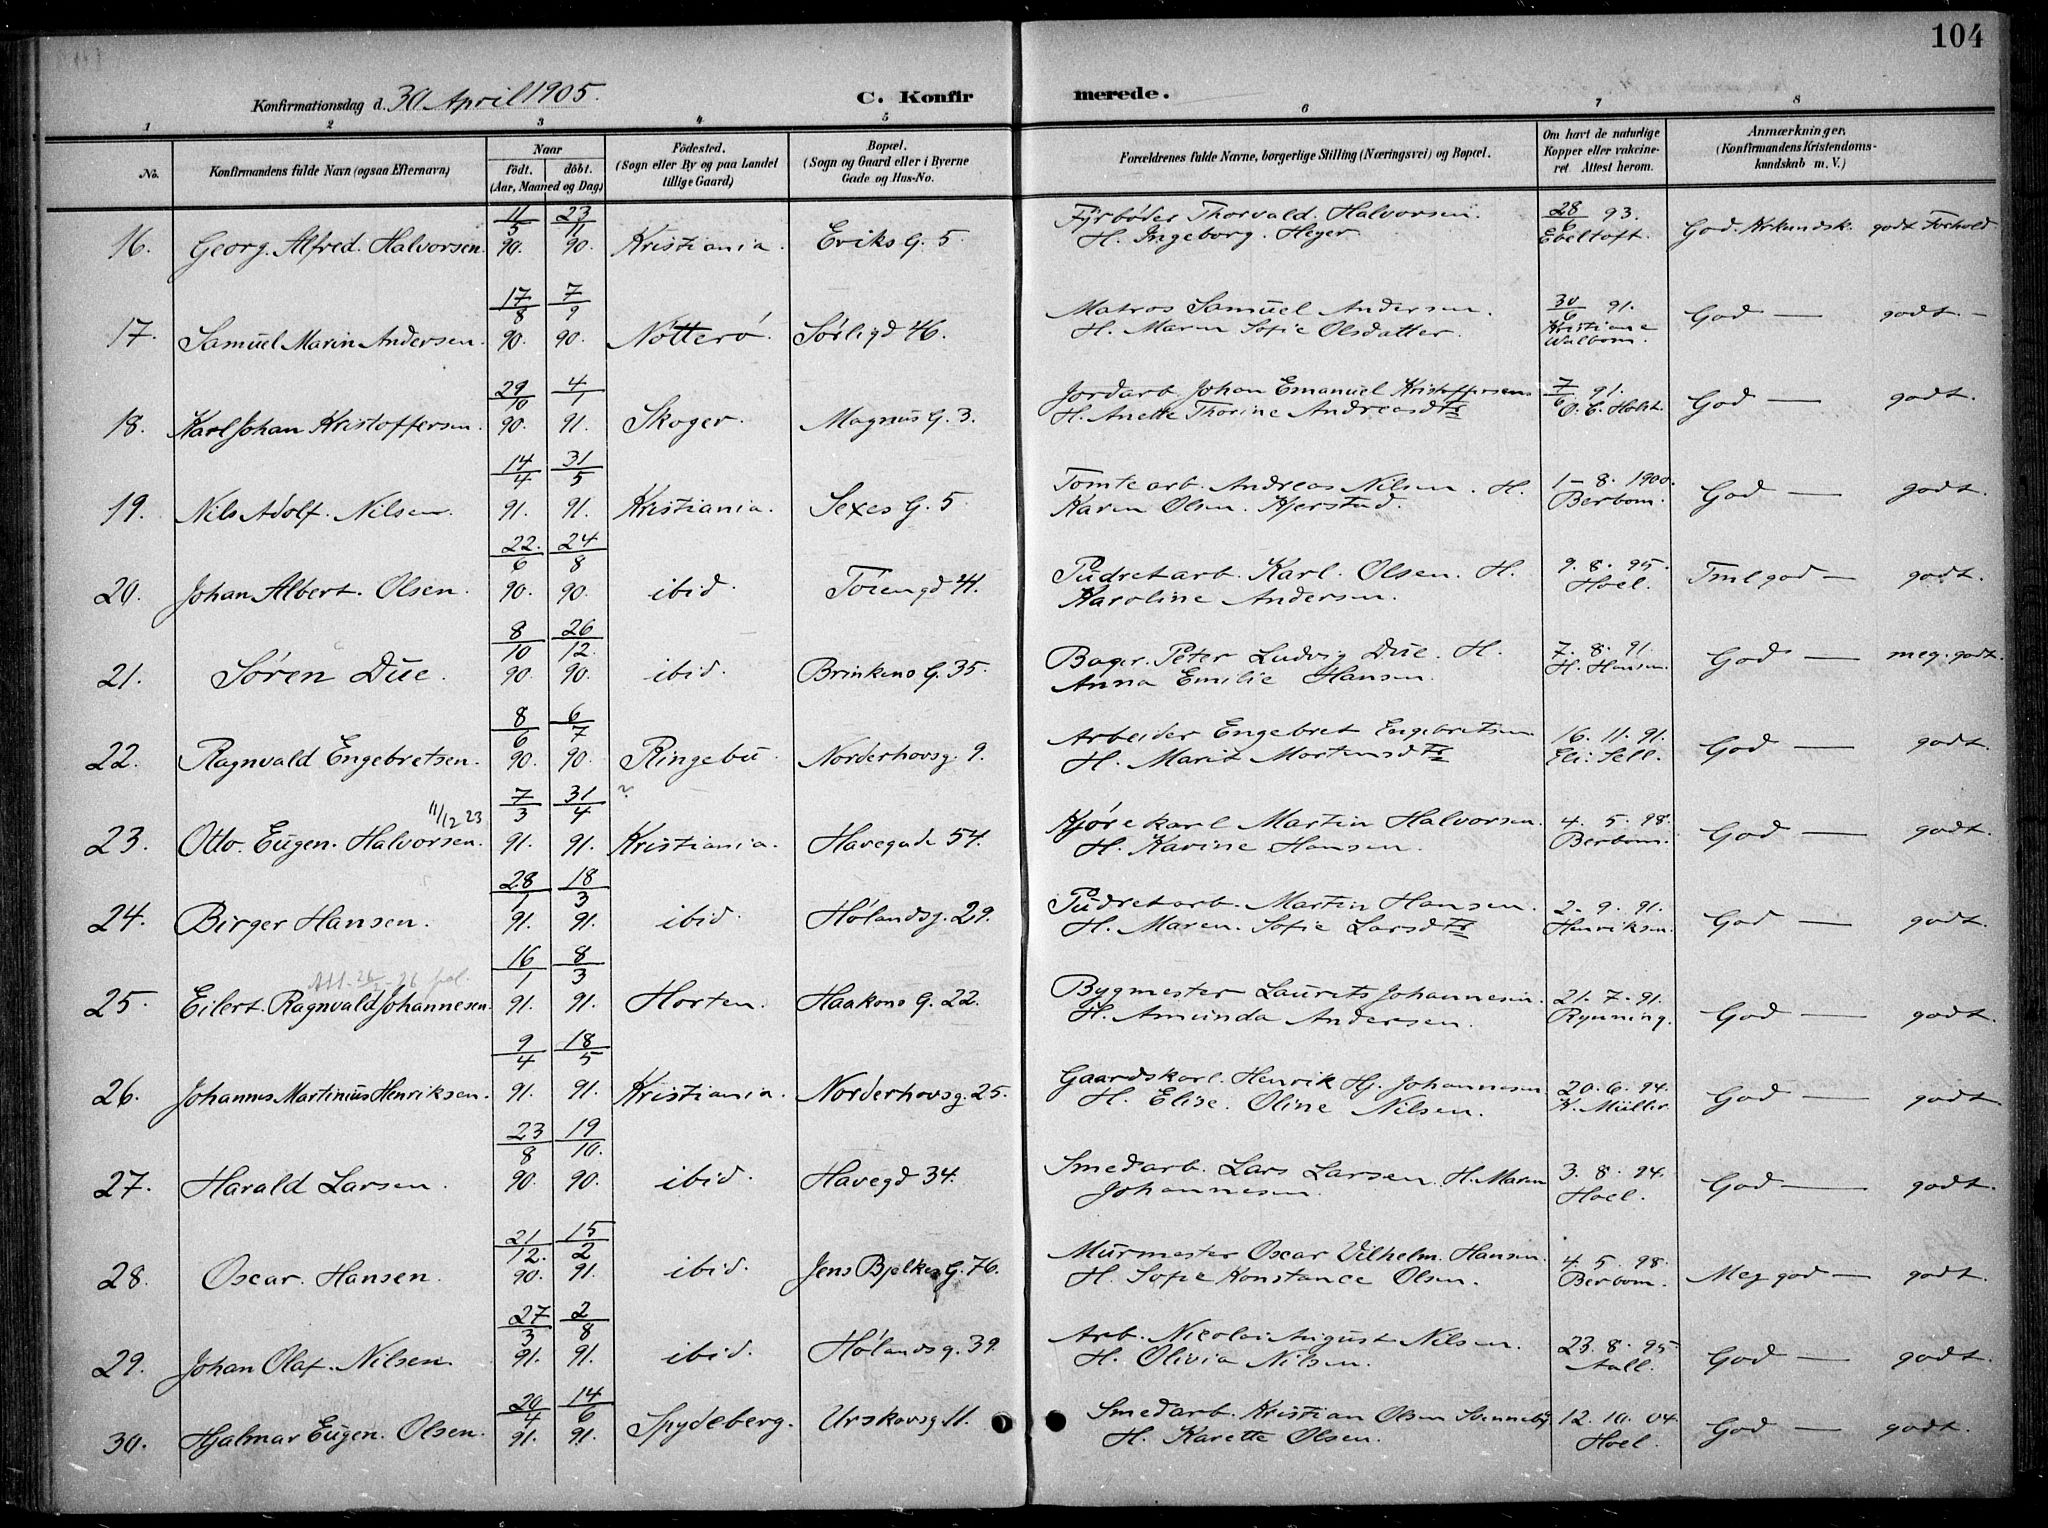 104
Konfirmationsdag d. 30 April 1905.
C. Konfirmerede.
1 2 3 4 5 6 7 8
No.
Konfirmandens fulde Navn (ogsaa Efternavn)
Naar
födt. döbt.
(Aar, Maaned og Dag)
Födested.
(Sogn eller By og paa Landet
tillige Gaard)
Bopæl.
(Sogn og Gaard eller i Byerne
Gade og Hus-No.
Forældrenes fulde Navne, borgerlige Stilling (Næringsvei) og Bopæl.
Om havt de naturlige
Kopper eller vakcine-
ret Attest herom.
Anmærkninger.
(Konfirmandens Kristendoms-
kundskab m. V.)
16. Georg. Alfred. Halvorsen. 11/5 90. 23/11 90. Kristiania. Eriks G. 5. Fyrbøder Thorvald. Halvorsen. 28/6 93. God. Krkundsk. godt Forhold
H. Ingeborg. Heyer. Ebeltoft.
17. Samuel Marin Andersen. 17/8 90. 7/9 90. Nötterö. Sørligd 46. Matros Samuel Andersen. 30/6 91. God — godt. —
H. Maren Sofie Olsdatter. Kristiane
Walbom.
18. Karl Johan Kristoffersen. 29/10 90. 4/1 91. Skoger. Magnus G. 3. Jordarb. Johan Emanuel Kristoffersen 7/6 91. God — godt.
H. Anette Thorine Andreasdtr O. C. Holst.
19. Nils Adolf. Nilsen. 14/4 91. 31/5 91. Kristiania. Sexes G. 5 Tomtearb. Andreas Nilsen. H. 1-8. 1900. God — godt.
Karen Olsen. Kjerstad. Berbom.
20. Johan Albert. Olsen. 22./6 90. 24/8 90. ibid. Töiengd 41. Pudretarb. Karl. Olsen. H. 9. 8. 95. Tml god — godt.
Karoline Andersen. Hoel.
21. Søren Due. 8/10 90. 26/12. 90. ibid. Brinkens G. 35. Bager. Peter Ludvig Due. H. 7. 8. 91. God — meg. godt.
Anna Emilie Hansen. H. Hansen
22. Ragnvald Engebretsen. 8/6 90. 6/7 90. Ringebu. Norderhovsg. 9. Arbeider Engebret Engebretsen 16. 11. 91. God — godt.
H. Marit Mortensdtr Eli: Sell.
11/12 23
23. Otto. Eugen. Halvorsen. 7/3 91. 31/4 91. ? Kristiania. Havegade 54. Kjørekarl Martin Halvorsen. 4. 5. 98. God — godt.
H. Karine Hansen. Berbom.
24. Birger Hansen. 28/1 91. 18/3 91. ibid. Hølandsg. 29. Pudretarb. Martin Hansen. 2. 9. 91. God — godt.
H. Maren. Sofie Larsdtr Henriksen.
25. Eilert. Ragnvald Johannesen. 16/1 91. 8/3 91. Horten. Haakons G. 22. Bygmester Laurits Johannesen. 21. 7. 91. God — godt.
H. Amunda Andersen. Rynning.
26. Johannes Martinius Henriksen. 9/4 91. 18/5 91. Kristiania. Norderhovsg. 25. Gaardskarl. Henrik Hj. Johannesen 20. 6. 94. God — godt.
H. Elise. Oline Nilsen. K. Müller
27. Harald Larsen. 23/8 90. 19/10. 90. ibid. Havegd 34. Smedarb. Lars Larsen. H. Maren 3. 8. 94. God — godt.
Johannesen. Hoel.
28. Oscar. Hansen. 21/12. 90. 15/2 91. ibid. Jens Bjelkes G. 76. Murmester Oscar Vilhelm. Hansen. 4. 5. 98. Meg god — godt.
H. Sofie Konstance Olsen. Berbom.
29. Johan Olaf. Nilsen 27/3 91. 2/8 91. ibid. Hølandsg. 39. Arb. Nicolai August Nilsen. 23. 8. 95. God — godt.
H. Olivia Nilsen. Aall.
30. Hjalmar Eugen. Olsen. 20/4 91. 14/6 91. Spydeberg. Urskovsg. 11. Smedarb. Kristian Olsen Svenneby 12. 10. 04. God — godt.
H. Karette Olsen. Hoel.